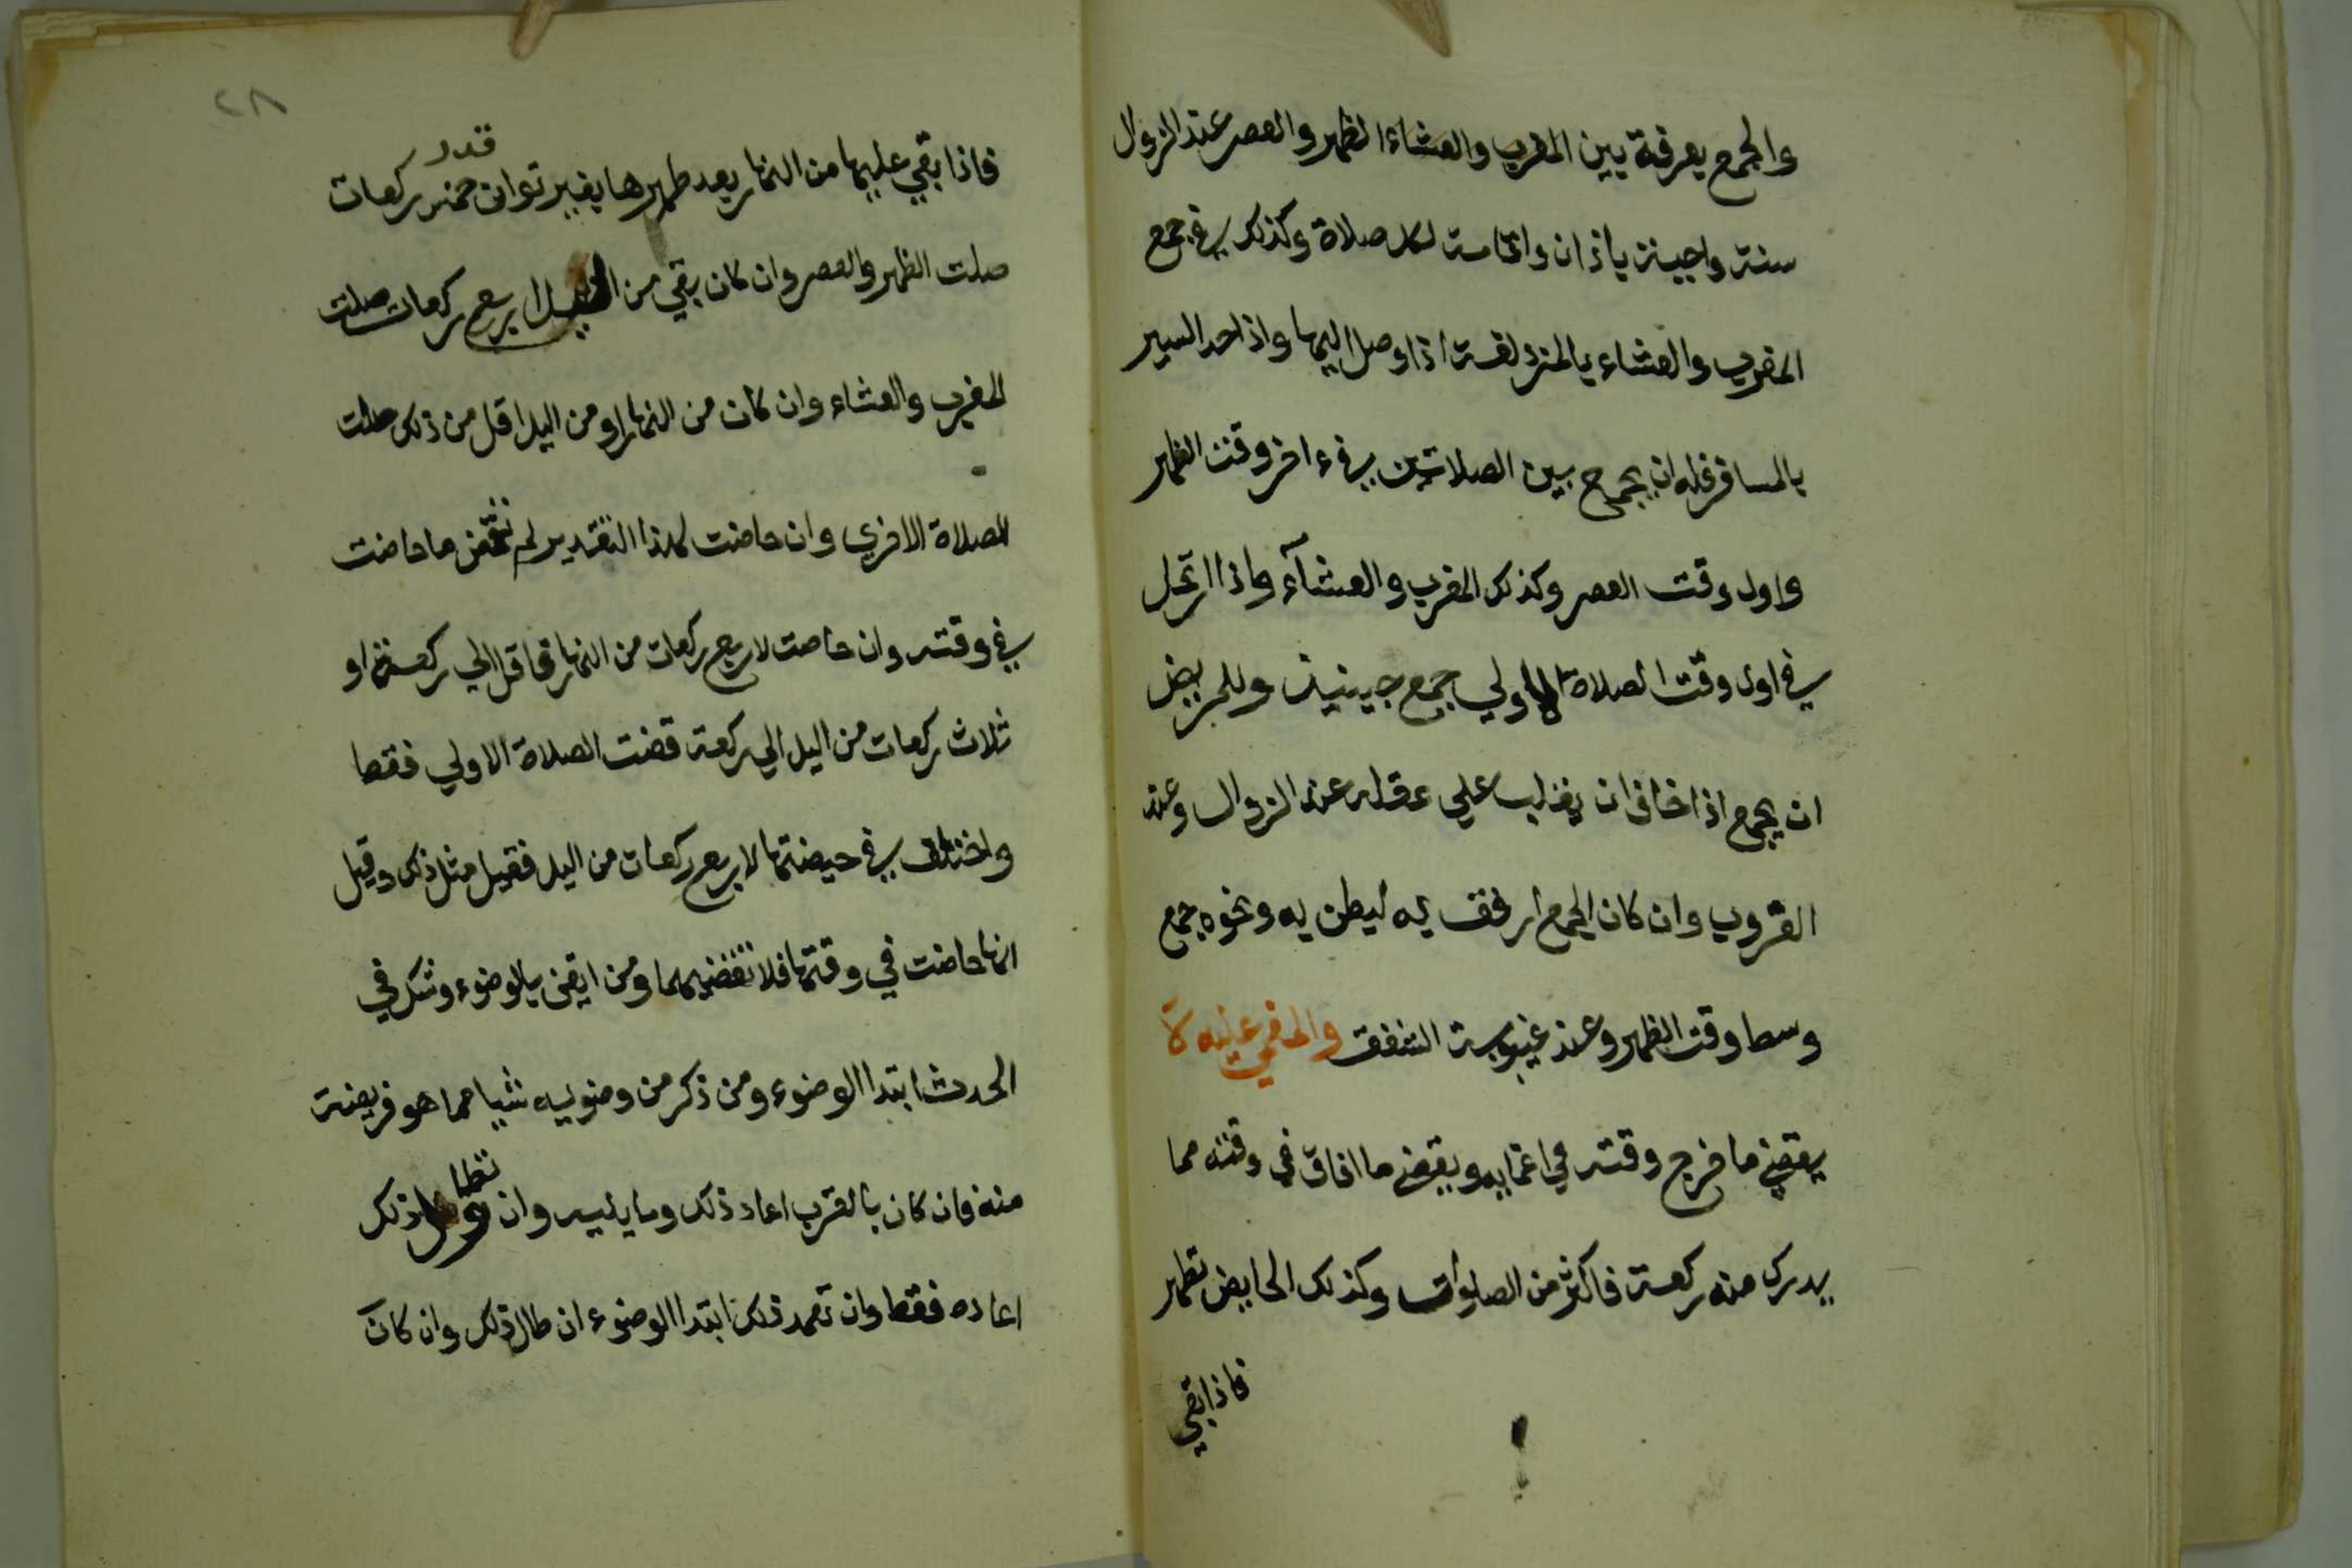 والجمع بعرفة بين المغرب والعشاء الظهر والعصر عند الزوال
سنة واجبة باذان واقامة لكل صلاة وكذلك في جمع
المغرب والعشاء بالمزدلفة اذا وصل اليها واذا جد السير
بالمسافر فله ان يجمع بين الصلاتين في ءاخر وقت الظهر
واول وقت العصر وكذلك المغرب والعشآء واذا ارتحل
في اول وقت الصلاة الاولي جمع حينيذ وللمريض
ان يجمع اذا خاف ان يغلب علي عقله عند الزوال وعند
الغروب وان كان الجمع ارفق به لبطن به ونحوه جمع
وسط وقت الظهر وعند غيبوبة الشفق والمغمي عليه لا
يقضي ما خرج وقته في اغمايه ويقضي ما افاق في وقته مما
يدرك منه ركعة فاكثر من الصلوات وكذلك الحايض تطهر
فاذا بقي
٢٨
فاذا بقي عليها من النهار بعد طهرها بغير توان قدر خمس ركعات
صلت الظهر والعصر وان كان بقي من اليل اربع ركعات صلت
المغرب والعشاء وان كان من النهار او من اليل اقل من ذلك صلت
الصلاة الاخري وان حاضت لهذا التقدير لم تقض ما حاضت
في وقته وان حاضت لاربع ركعات من النهار فاقل الي ركعة او
ثلاث ركعات من اليل الي ركعة قضت الصلاة الاولي فقط
واختلف في حيضتها لاربع ركعات من اليل فقيل مثل ذلك وقيل
انها حاضت في وقتها فلا تقضيهما ومن ايقن بالوضوء وشك في
الحدث ابتدا الوضوء ومن ذكر من وضويه شيا مما هو فريضة
منه فان كان بالقرب اعاد ذلك وما يليه وان تطاول ذلك
اعاده فقط وان تعمد ذلك ابتدا الوضوء ان طال ذلك وان كان